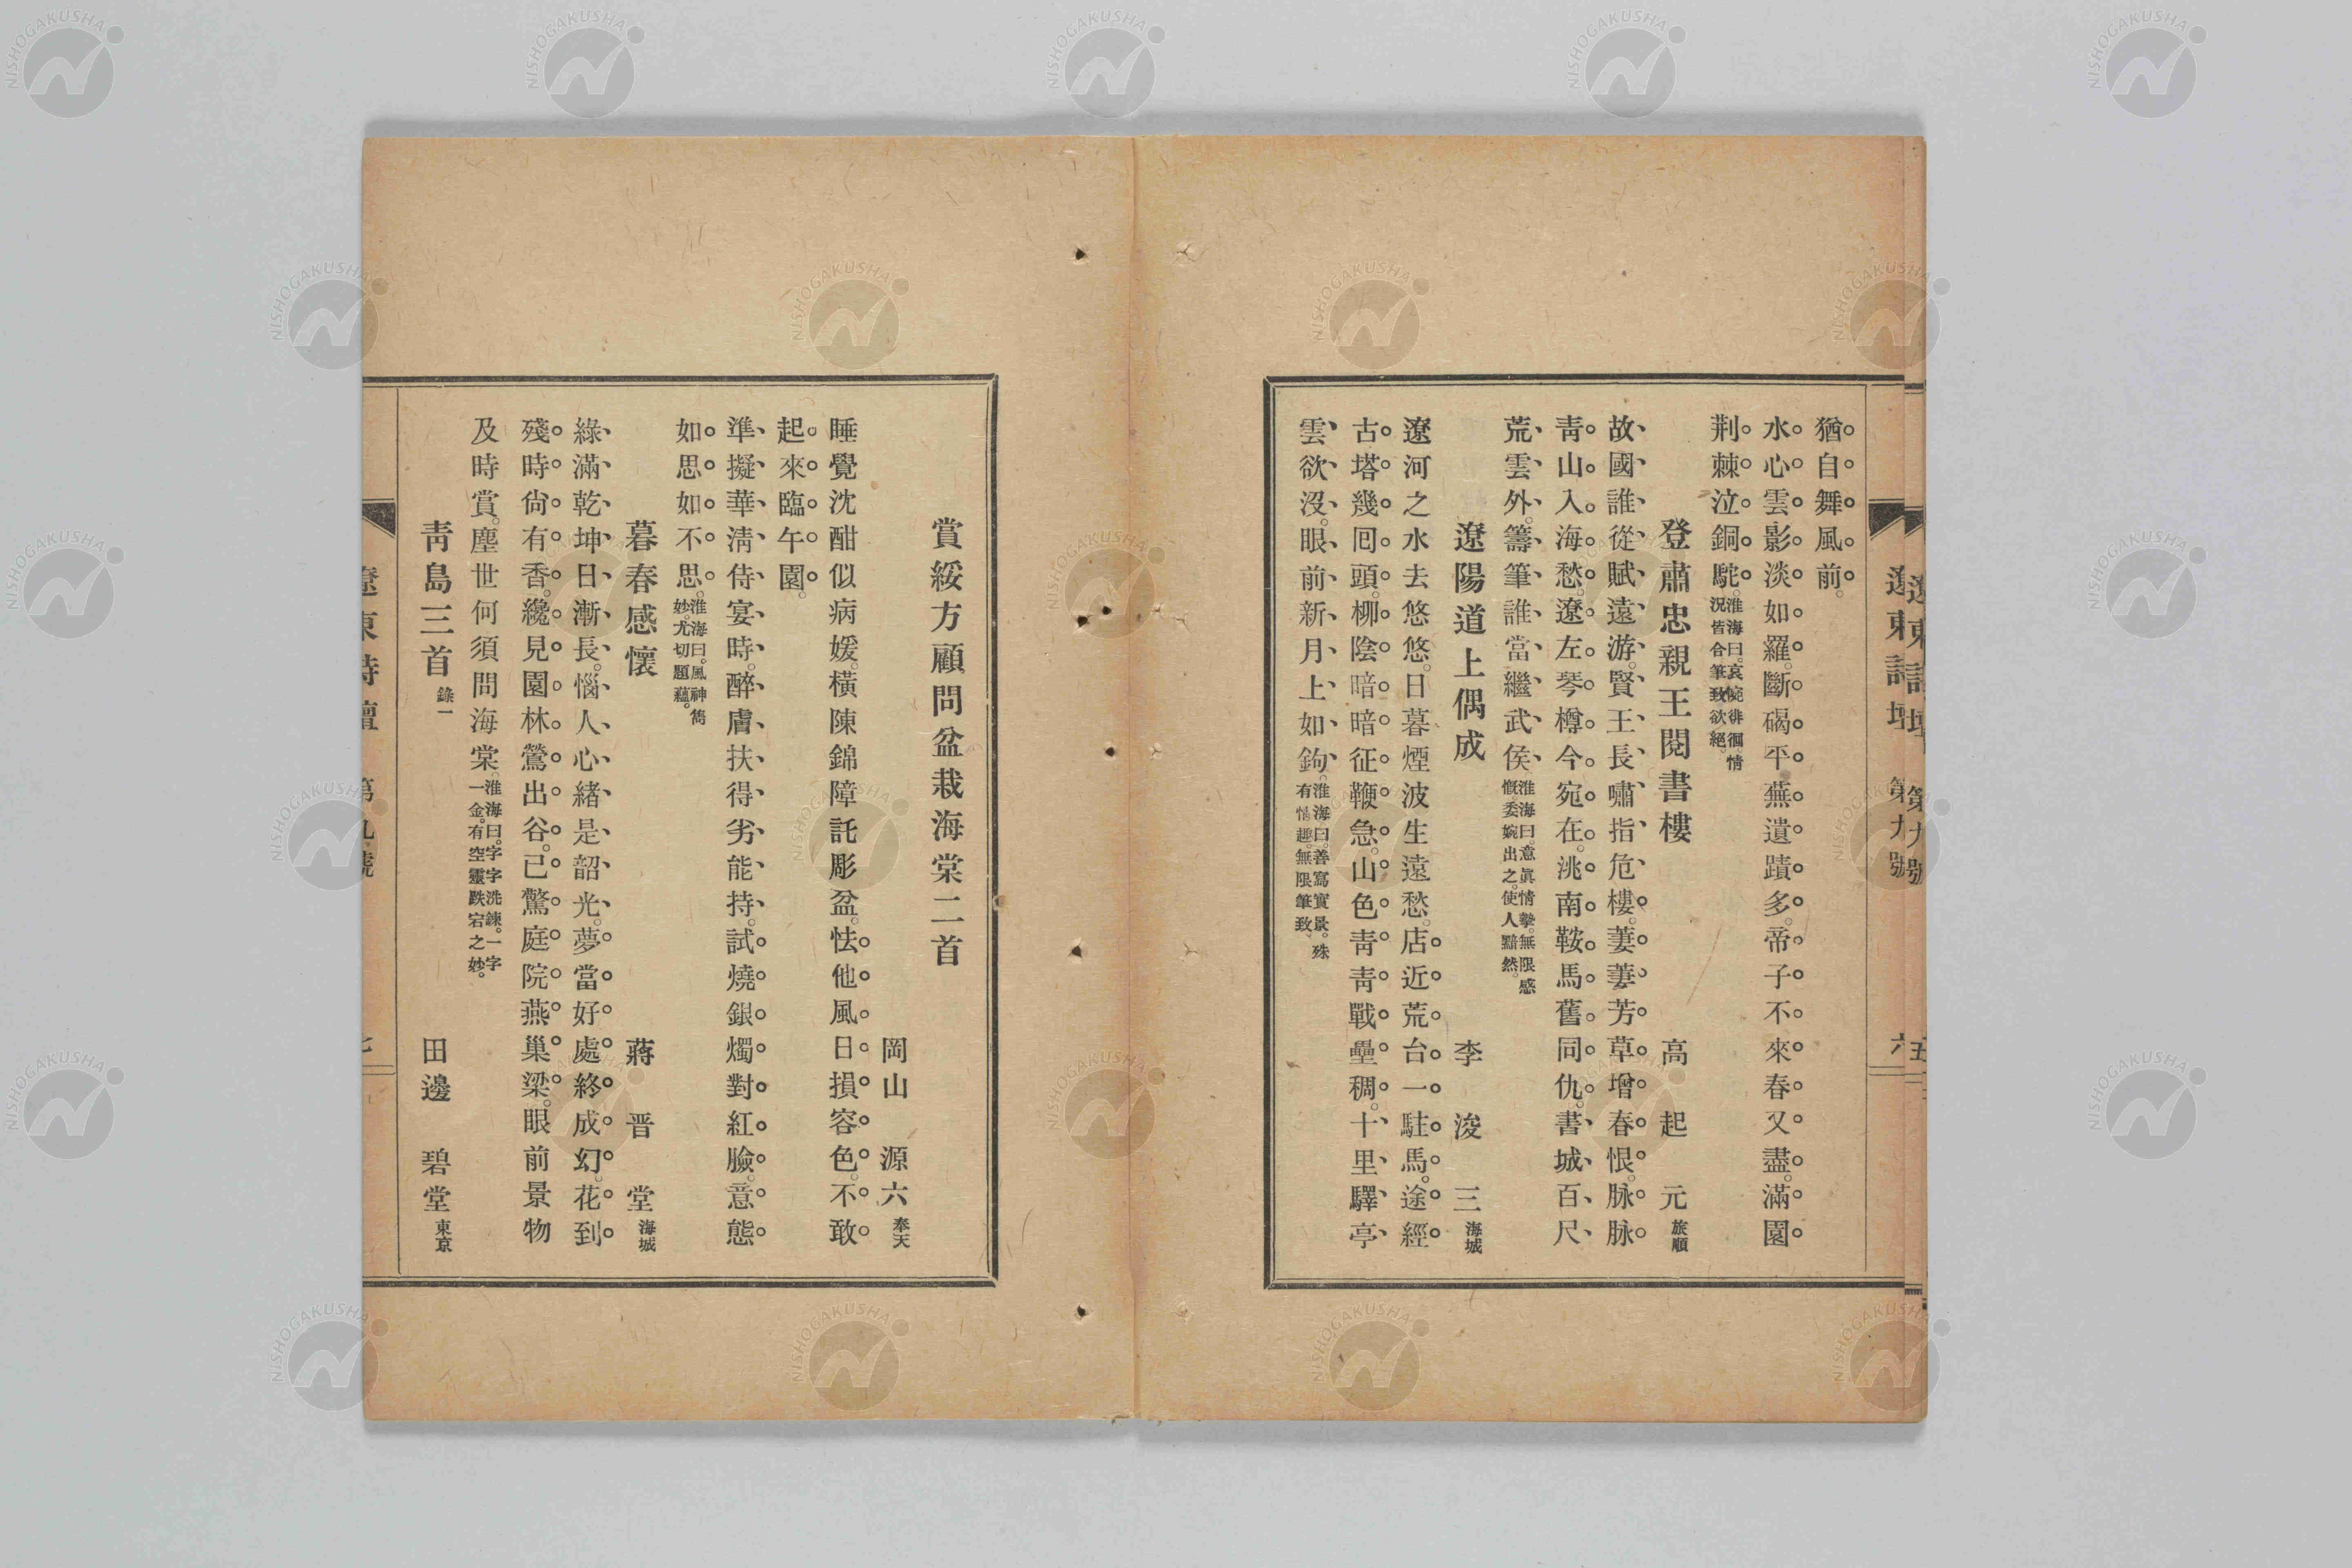 猶自舞風前。
水心雲影淡如羅。斷碣平蕪遺蹟多。帝子不來春又盡。滿園
荆棘泣銅駝。淮海曰。哀婉徘徊。情況皆合。筆致欲絕。
登肅忠親王閱書樓
高起元 旅順
故國誰從賦遠游。賢王長嘯指危樓。萋萋芳草增春恨。脉脉
靑山入海愁。遼左琴樽今宛在。洮南鞍馬舊同仇。書城百尺
荒雲外。籌筆誰當繼武侯。淮海曰。意眞情摯。無限感慨。委婉出之。使人黯然。
遼陽道上偶成
李浚三 海城
遼河之水去悠悠。日暮煙波生遠愁。店近荒台一駐馬。途經
古塔幾回頭。柳陰暗暗征鞭急。山色靑靑戰壘稠。十里驛亭
雲欲沒。眼前新月上如鉤。淮海曰。善寫實景。殊有情趣。無限筆致。
遼東詩壇 第九號 六
賞綏方顧問盆栽海棠二首
岡山源六 奉天
睡覺沈酣似病媛。橫陳錦障託彫盆。怯他風日損容色。不敢
起來臨午園。
準擬華淸侍宴時。醉膚扶得劣能持。試燒銀燭對紅臉。意態
如思如不思。淮海曰。風神雋妙。尤切題蘊。
暮春感懷
蔣晋堂 海城
綠滿乾坤日漸長。惱人心緖是韶光。夢當好處終成幻。花到
殘時尙有香。纔見園林鶯出谷。已驚庭院燕巢梁。眼前景物
及時賞。塵世何須問海棠。淮海曰。字字洗鍊。一字一金。有空靈跌宕之妙。
靑島三首 錄一
田邊碧堂 東京
遼東詩壇 第九號 七